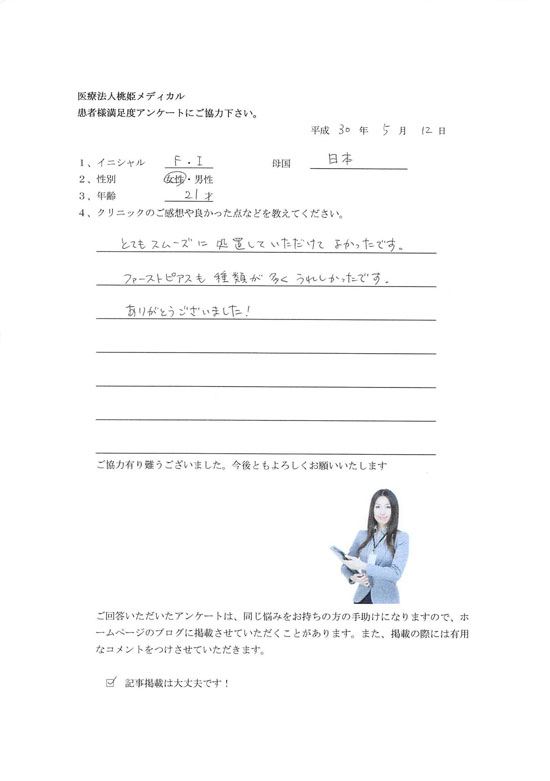 医療法人桃姫メディカル
患者様満足度アンケートにご協力下さい。
平成 30 年 5 月 12 日
1、イニシャル F・I 母国 日本
2、性別 女性・男性
3、年齢 21才
4、クリニックのご感想や良かった点などを教えてください。
とてもスムーズに処置していただけてよかったです。
ファーストピアスも種類が多くうれしかったです。
ありがとうございました!
ご協力有り難うございました。今後ともよろしくお願いいたします
ご回答いただいたアンケートは、同じ悩みをお持ちの方の手助けになりますので、ホ
ームページのブログに掲載させていただくことがあります。また、掲載の際には有用
なコメントをつけさせていただきます。
☑ 記事掲載は大丈夫です!